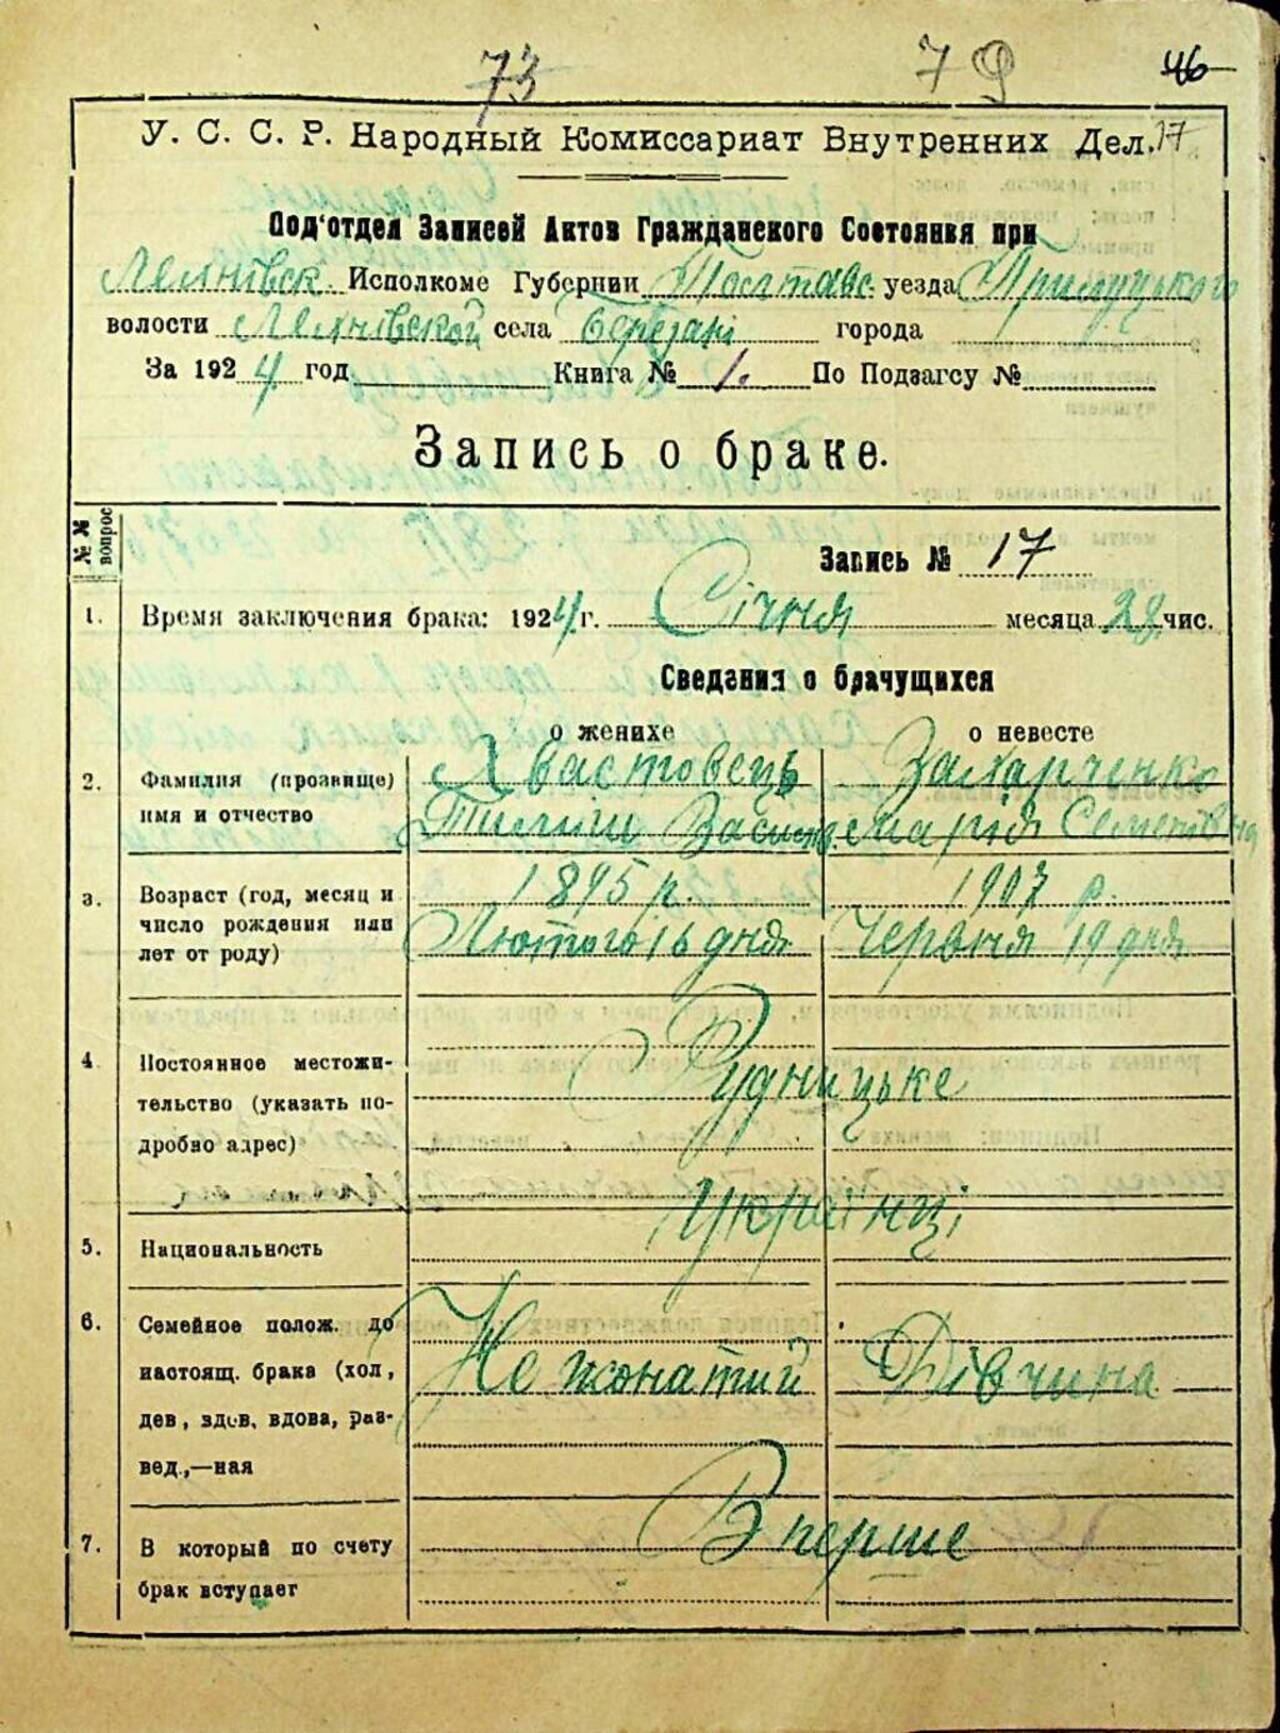 73 79 46
У. С. С. Р. Народный Комиссариат Внутренних Дел. 17
Под'отдел Записей Актов Гражданского Состояния при
Исполкоме Губернии Полтавс. уезда Прилуцького
волости села города
За 1924 год Книга № 1. По Подзагсу №
Запись о браке.
№№ вопрос
Запись № 17
1. Время заключения брака: 1924 г. Січня месяца 28 чис.
Сведения о брачущихся
о женихе о невесте
2. Фамилия (прозвище) Хвастовець Захарченко
имя и отчество Марія Семенівна
3. Возраст (год, месяц и 1895 р. 1907 р.
число рождения или Лютого 16 дня Червня 19 дня
лет от роду)
4. Постоянное местожи-
тельство (указать по- Рудницьке
дробно адрес)
Українці
5. Национальность
6. Семейное полож. до
настоящ. брака (хол, Не жонатий Дівчина
дев, вдов, вдова, раз-
вед.,—ная
7. В который по счету Вперше
брак вступает